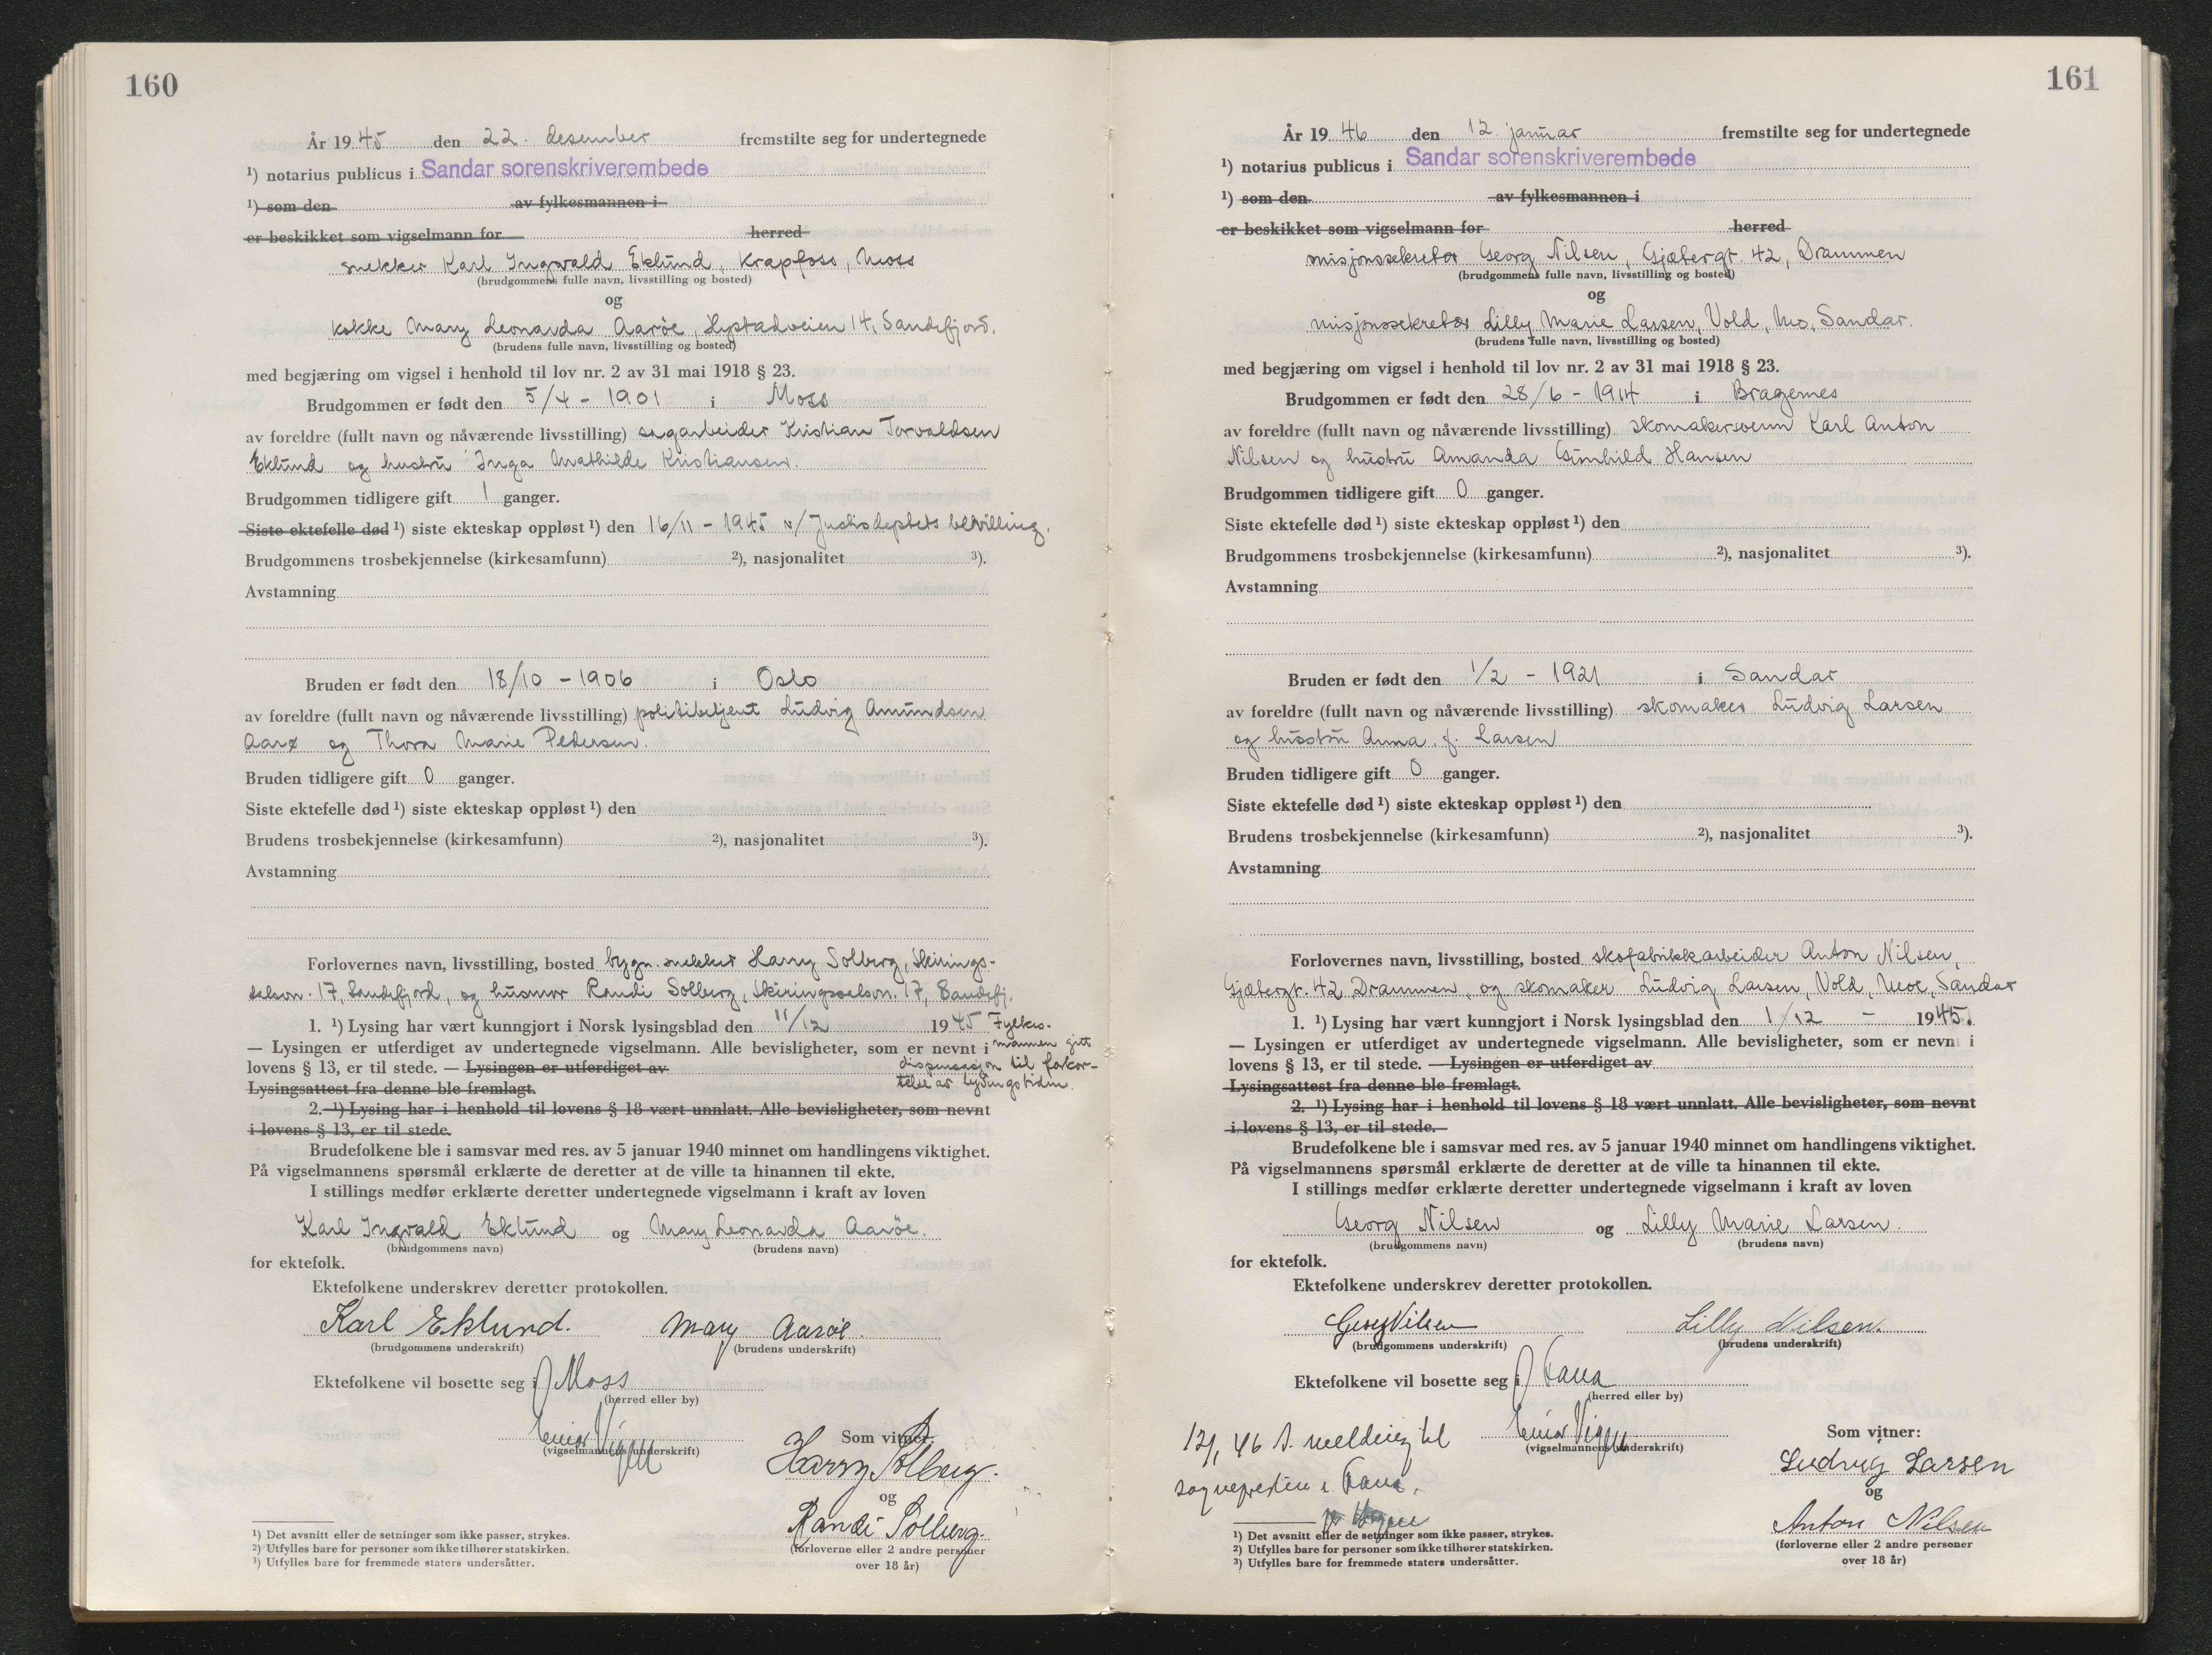 160
År 1945 den 22. desember fremstilte seg for undertegnede
¹) notarius publicus i Sandar sorenskriverembede
¹) som den av fylkesmannen i
er beskikket som vigselmann for herred
snekker Karl Ingvald Eklund, Krapfoss, Moss
(brudgommens fulle navn, livsstilling og bosted)
og
kokke Mary Leonarda Aarøe, Hystadveien 14, Sandefjord.
(brudens fulle navn, livsstilling og bosted)
med begjæring om vigsel i henhold til lov nr. 2 av 31 mai 1918 § 23.
Brudgommen er født den 5/4 - 1901 i Moss
av foreldre (fullt navn og nåværende livsstilling) sagarbeider Kristian Torvaldsen
Eklund og hustru Inga Mathilde Kristiansen.
Brudgommen tidligere gift 1 ganger.
Siste ektefelle død ¹) siste ekteskap oppløst ¹) den 16/11 - 1945 v/ Justisdeptets bevilling.
Brudgommens trosbekjennelse (kirkesamfunn) ²), nasjonalitet ³).
Avstamning
Bruden er født den 18/10 - 1906 i Oslo
av foreldre (fullt navn og nåværende livsstilling) politibetjent Ludvig Amundsen
Aarø og Thora Marie Pedersen.
Bruden tidligere gift 0 ganger.
Siste ektefelle død ¹) siste ekteskap oppløst ¹) den
Brudens trosbekjennelse (kirkesamfunn) ²), nasjonalitet ³).
Avstamning
Forlovernes navn, livsstilling, bosted bygn. snekker Harry Solberg, Skirings-
salson. 17, Sandefjord, og husmor Randi Solberg, Skiringssalson. 17, Sandefj.
1. ¹) Lysing har vært kunngjort i Norsk lysingsblad den 11/12 1945 Fylkes-
— Lysingen er utferdiget av undertegnede vigselmann. Alle bevisligheter, som er nevnt i mannen gitt
lovens § 13, er til stede. — Lysingen er utferdiget av dispensasjon til forkor-
Lysingsattest fra denne ble fremlagt. telse av lysingstiden.
2. ¹) Lysing har i henhold til lovens § 18 vært unnlatt. Alle bevisligheter, som nevnt
i lovens § 13, er til stede.
Brudefolkene ble i samsvar med res. av 5 januar 1940 minnet om handlingens viktighet.
På vigselmannens spørsmål erklærte de deretter at de ville ta hinannen til ekte.
I stillings medfør erklærte deretter undertegnede vigselmann i kraft av loven
Karl Ingvald Eklund og Mary Leonarda Aarøe.
(brudgommens navn) (brudens navn)
for ektefolk.
Ektefolkene underskrev deretter protokollen.
Karl Eklund. Mary Aarøe.
(brudgommens underskrift) (brudens underskrift)
Ektefolkene vil bosette seg i Moss
(herred eller by)
(vigselmannens underskrift)
Som vitner:
Harry Solberg.
og
Randi Solberg.
(forloverne eller 2 andre personer
over 18 år)
¹) Det avsnitt eller de setninger som ikke passer, strykes.
²) Utfylles bare for personer som ikke tilhører statskirken.
³) Utfylles bare for fremmede staters undersåtter.
161
År 1946 den 12. januar fremstilte seg for undertegnede
¹) notarius publicus i Sandar sorenskriverembede
¹) som den av fylkesmannen i
er beskikket som vigselmann for herred
misjonssekretær Georg Nilsen, Gjæbergt. 42, Drammen
(brudgommens fulle navn, livsstilling og bosted)
og
misjonssekretær Lilly Marie Larsen, Vold, Mo, Sandar.
(brudens fulle navn, livsstilling og bosted)
med begjæring om vigsel i henhold til lov nr. 2 av 31 mai 1918 § 23.
Brudgommen er født den 28/6 - 1914 i Bragernes
av foreldre (fullt navn og nåværende livsstilling) skomakersvenn Karl Anton
Nilsen og hustru Amanda Gunhild Hansen
Brudgommen tidligere gift 0 ganger.
Siste ektefelle død ¹) siste ekteskap oppløst ¹) den
Brudgommens trosbekjennelse (kirkesamfunn) ²), nasjonalitet ³).
Avstamning
Bruden er født den 1/2 - 1921 i Sandar
av foreldre (fullt navn og nåværende livsstilling) skomaker Ludvig Larsen
og hustru Anna f. Larsen
Bruden tidligere gift 0 ganger.
Siste ektefelle død ¹) siste ekteskap oppløst ¹) den
Brudens trosbekjennelse (kirkesamfunn) ²), nasjonalitet ³).
Avstamning
Forlovernes navn, livsstilling, bosted skofabrikkarbeider Anton Nilsen,
Gjæbergt. 42, Drammen, og skomaker Ludvig Larsen, Vold, Moe, Sandar
1. ¹) Lysing har vært kunngjort i Norsk lysingsblad den 1/12 - 1945.
— Lysingen er utferdiget av undertegnede vigselmann. Alle bevisligheter, som er nevnt i
lovens § 13, er til stede. — Lysingen er utferdiget av
Lysingsattest fra denne ble fremlagt.
2. ¹) Lysing har i henhold til lovens § 18 vært unnlatt. Alle bevisligheter, som nevnt
i lovens § 13, er til stede.
Brudefolkene ble i samsvar med res. av 5 januar 1940 minnet om handlingens viktighet.
På vigselmannens spørsmål erklærte de deretter at de ville ta hinannen til ekte.
I stillings medfør erklærte deretter undertegnede vigselmann i kraft av loven
Georg Nilsen og Lilly Marie Larsen.
(brudgommens navn) (brudens navn)
for ektefolk.
Ektefolkene underskrev deretter protokollen.
Georg Nilsen Lilly Nilsen.
(brudgommens underskrift) (brudens underskrift)
Ektefolkene vil bosette seg i Fana
(herred eller by)
12/1 46 s. melding til
sognepresten i Fana.
(vigselmannens underskrift)
Som vitner:
Ludvig Larsen
og
Anton Nilsen
(forloverne eller 2 andre personer
over 18 år)
¹) Det avsnitt eller de setninger som ikke passer, strykes.
²) Utfylles bare for personer som ikke tilhører statskirken.
³) Utfylles bare for fremmede staters undersåtter.